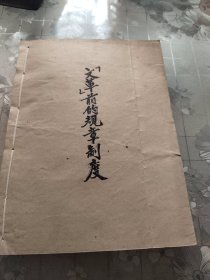 「文革」前的规章制度